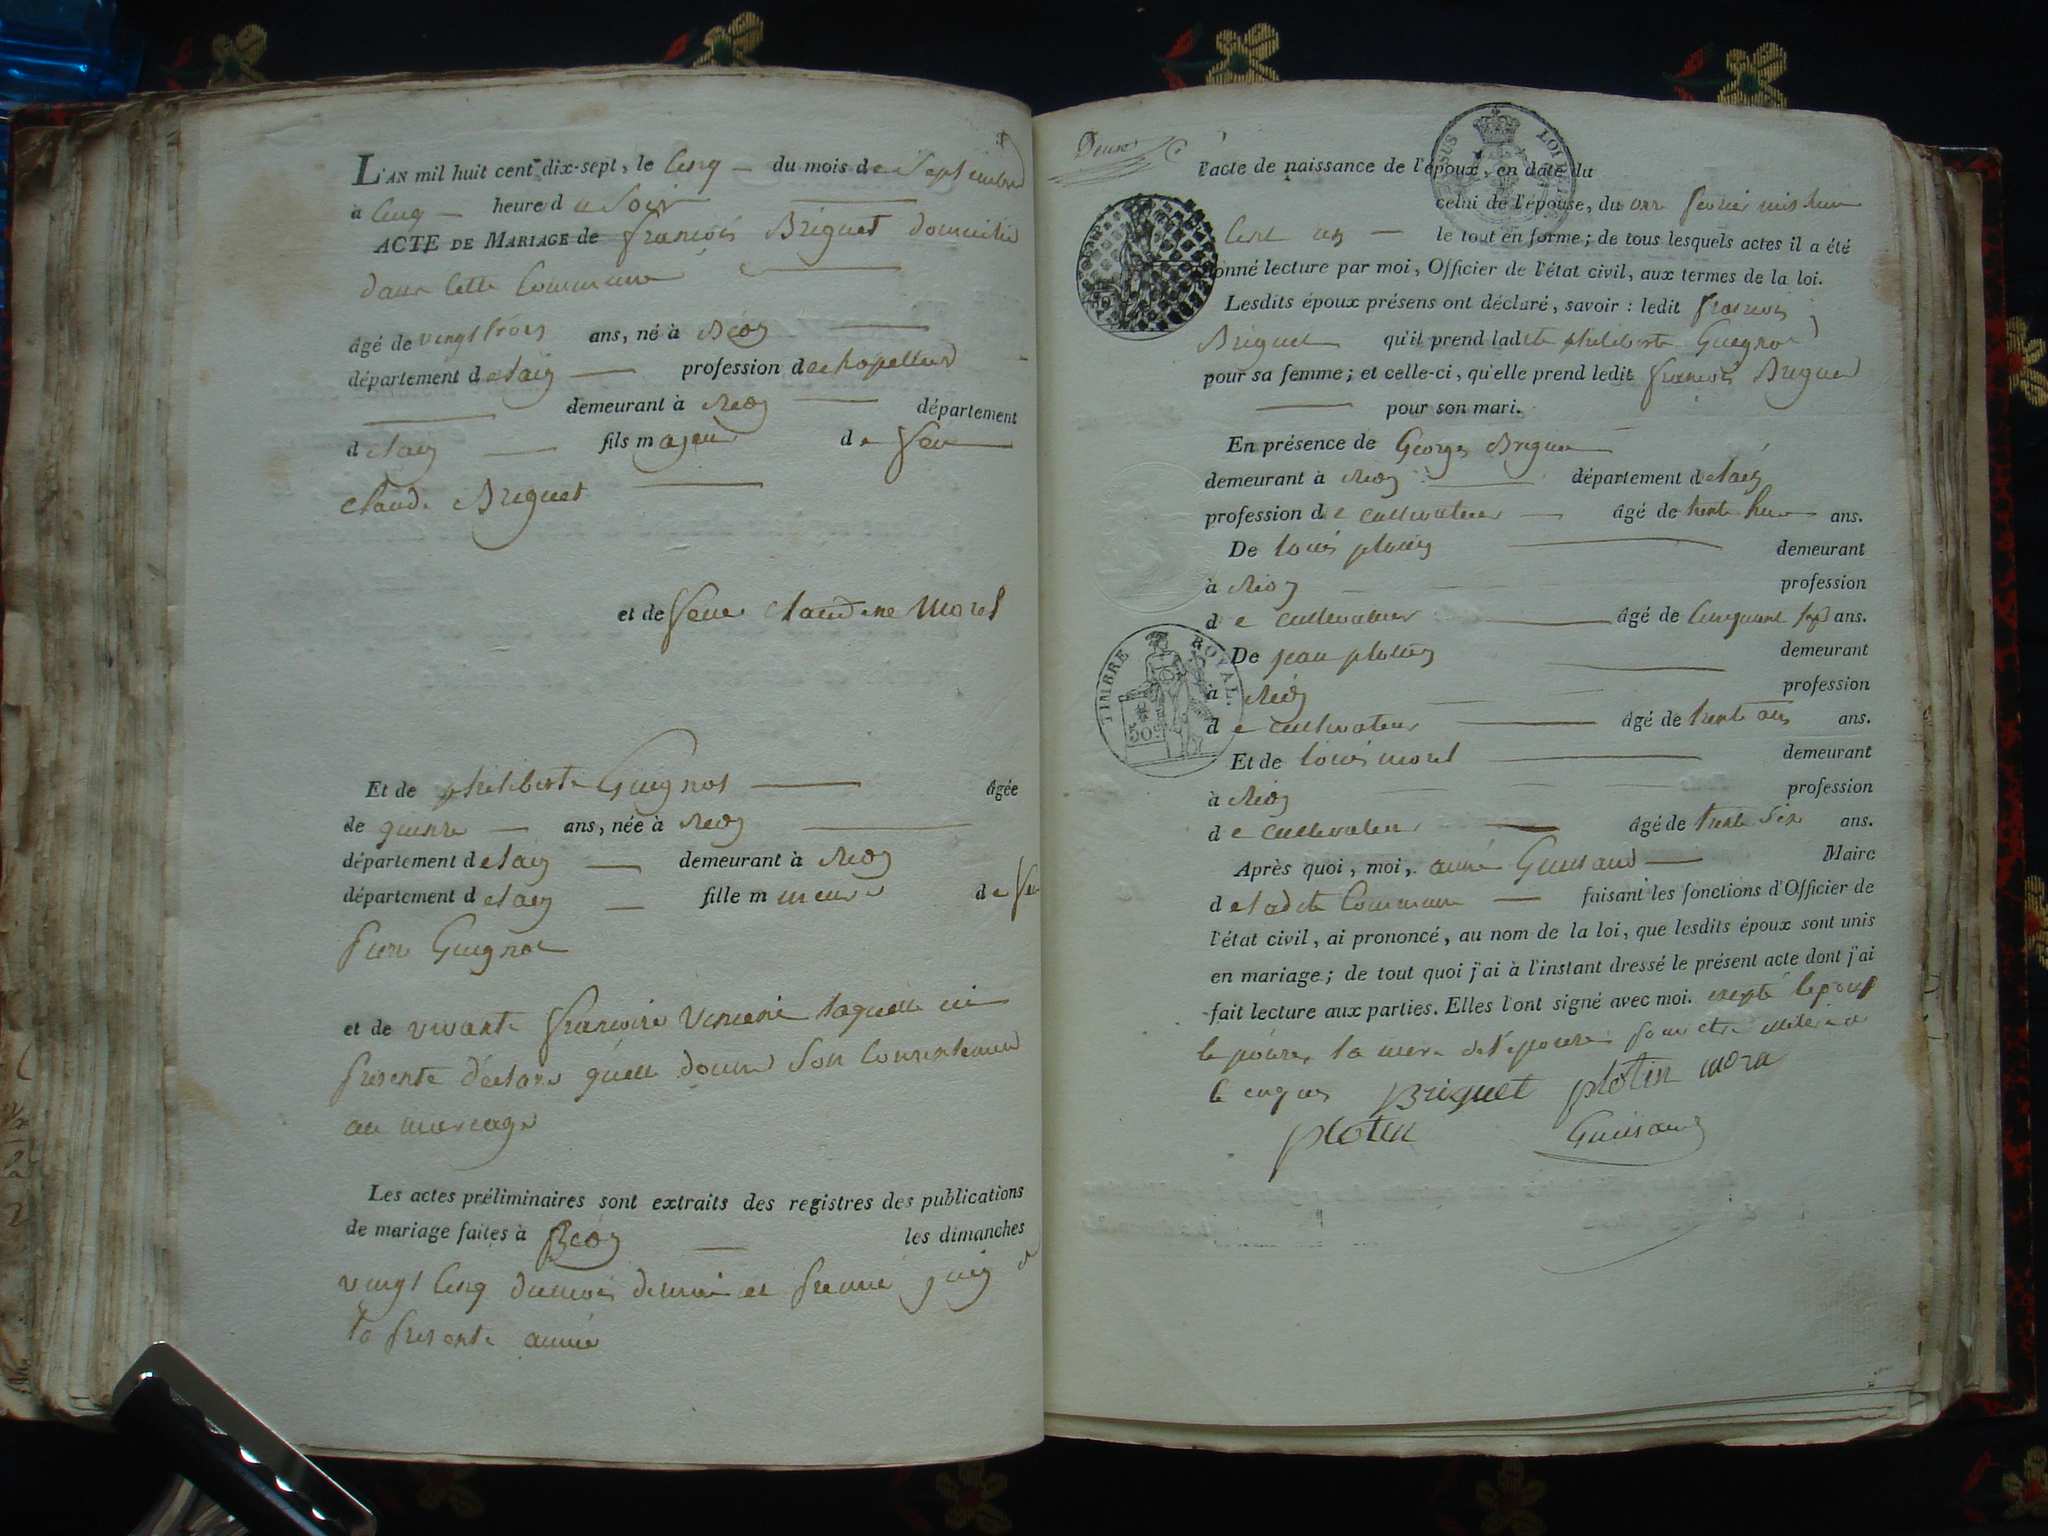 L'AN mil huit cent dix-sept, le Cinq — du mois de Septembre
à Cinq — heure du Soir
ACTE DE MARIAGE de françois Briguet domicilié
dans cette Commune
âgé de vingt trois ans, né à Béon
département de lain profession de
demeurant à Béon département
de lain fils majeur de feu
Claude Briguet
et de feue Claudine Morel
Et de philiberte Guignot âgée
de quinze — ans, née à Béon
département de lain demeurant à Béon
département de lain fille mineure de feu
pierre Guignot
et de vivante françoise laquelle ici
présente déclare quelle donne son Consentement
au mariage
Les actes préliminaires sont extraits des registres des publications
de mariage faites à Béon les dimanches
vingt Cinq du mois de mai et premier juin d
la présente année
l'acte de naissance de l'époux, en date du
celui de l'épouse, du fevrier mil huit
Cent un — le tout en forme; de tous lesquels actes il a été
donné lecture par moi, Officier de l'état civil, aux termes de la loi.
Lesdits époux présens ont déclaré, savoir : ledit françois
Briguet qu'il prend ladite philiberte Guignot
pour sa femme; et celle-ci, qu'elle prend ledit françois Briguet
pour son mari.
En présence de Georges Briguet
demeurant à Béon département de lain
profession de cultivateur — âgé de trente huit ans.
De louis plotin demeurant
à Béon profession
de cultivateur âgé de Cinquante sept ans.
De jean plotin demeurant
à Béon profession
de cultivateur âgé de trente ans.
Et de louis morel demeurant
à Béon profession
de cultivateur âgé de trente six ans.
Après quoi, moi, Maire
de ladite Commune — faisant les fonctions d'Officier de
l'état civil, ai prononcé, au nom de la loi, que lesdits époux sont unis
en mariage; de tout quoi j'ai à l'instant dressé le présent acte dont j'ai
fait lecture aux parties. Elles l'ont signé avec moi. excepté lepoux
lepouse, la mere de l'epouse pour etre
Briguet plotin morel
plotin
TIMBRE ROYAL
50